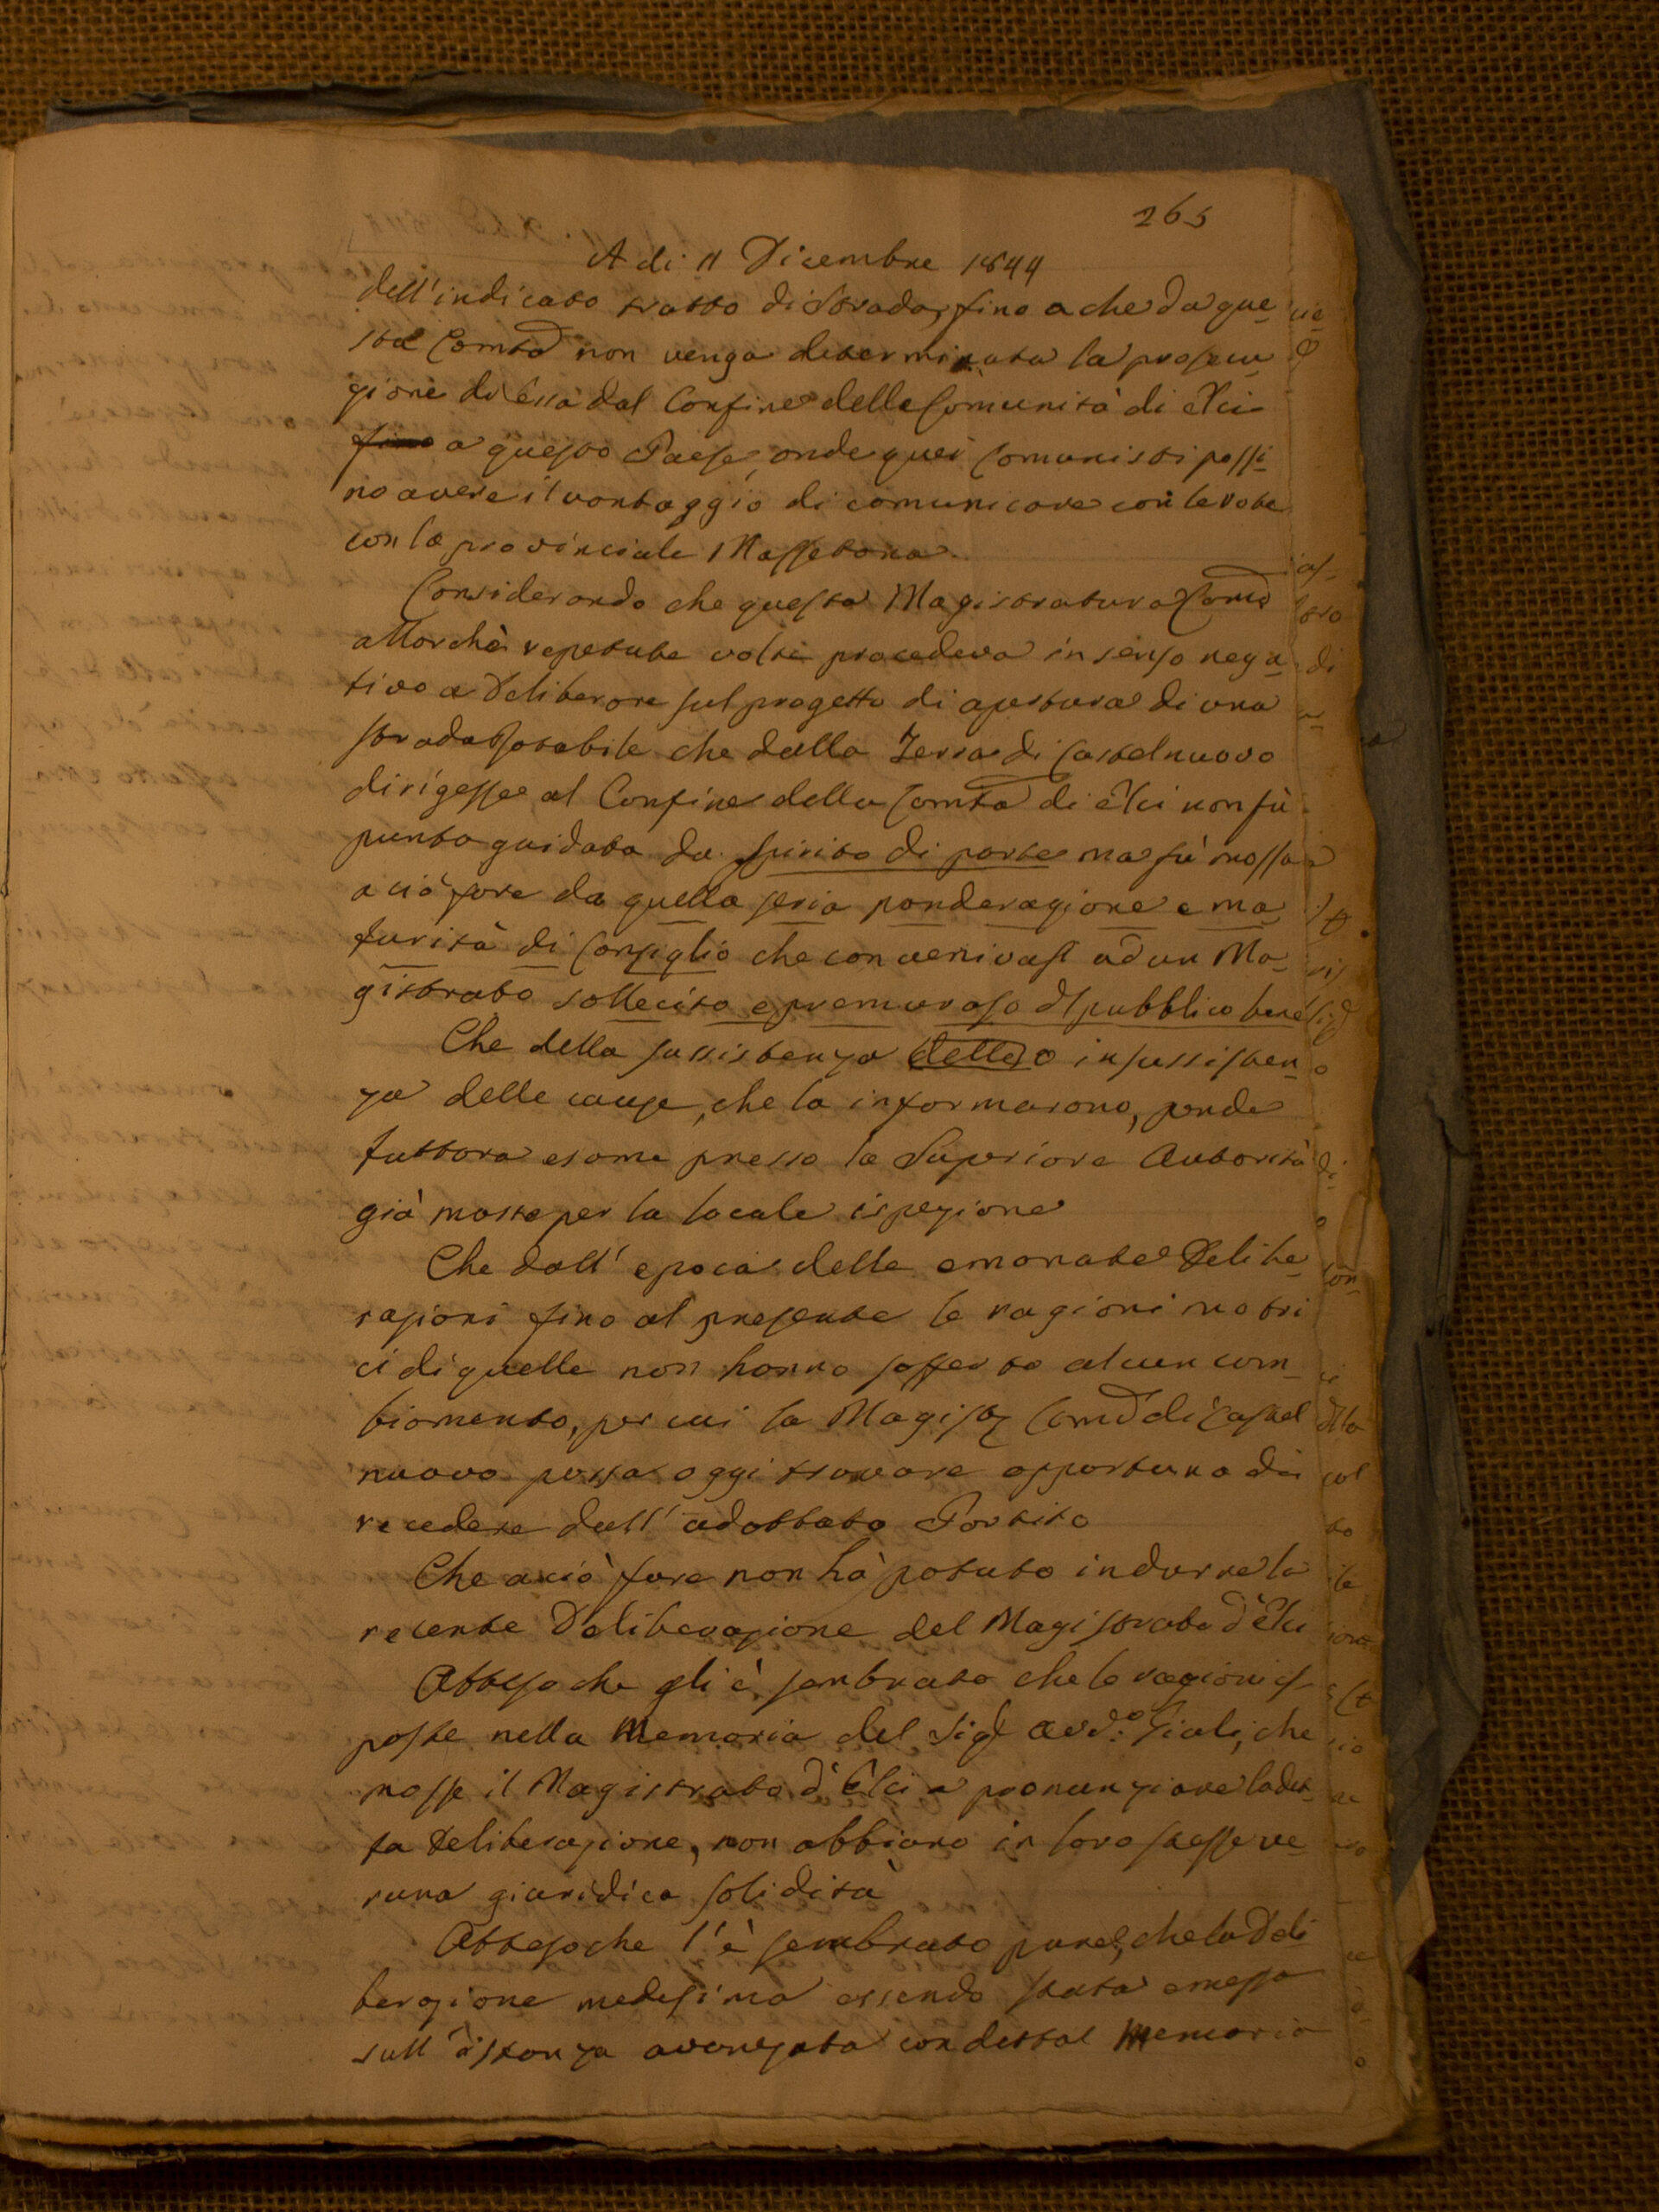 265
A di 11 Dicembre 1844
dell'indicato tratto di Strada, fino a che da que
sta Comtà non venga determinata la prosecu
zione di essa dal Confine della Comunità di Elci
fino a questo Paese, onde quei Comunisti possi
no avere il vantaggio di comunicare con le rote
con la provinciale Massetana.
Considerando che questa Magistratura Comã
allorchè repetute volte procedeva in senso nega
tivo a Deliberare sul progetto di apertura di una
strada Rotabile che dalla Terra di Castelnuovo
dirigesse al Confine della Comtà di Elci non fù
punto guidata da spirito di parte ma fù mossa
a ciò fare da quella seria ponderazione e ma
turità di Consiglio che convenivasi ad un Ma
gistrato sollecito e premuroso del pubblico bene
Che della sussistenza delle o insussisten
za delle cause, che la informarono, pende
tuttora esame presso la Superiore Autorità
già mossa per la locale ispezione
Che dall'epoca delle emanate Delibe
razioni fino al presente le ragioni motri
ci di quelle non hanno sofferto alcun cam
biamento, per cui la Magist Comã di Castel
nuovo possa oggi trovare opportuno di
recedere dall'adottato Partito
Che a ciò fare non hà potuto indurre la
recente Deliberazione del Magistrato d'Elci
Attesochè gli è sembrato che le ragioni es
poste nella Memoria del Sigr Avvo. che
mosse il Magistrato d'Elci a pronunziare la det
ta Deliberazione, non abbiano in loro stesse ve
runa giuridica solidità
Attesochè l'è sembrato pure, che la Deli
berazione medesima essendo stata emessa
sull'istanza avanzata con detta Memoria